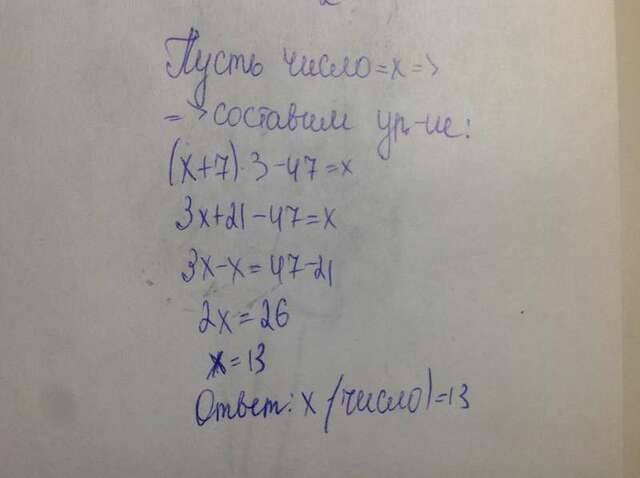 Пусть число = x =>
=> составим ур-ие:
(x+7)·3-47=x
3x+21-47=x
3x-x=47-21
2x=26
x=13
Ответ: x (число)=13